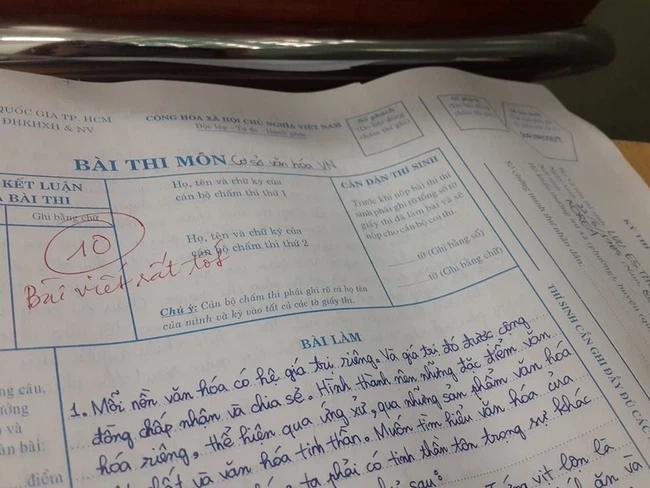 QUỐC GIA TP. HCM
ĐHKHXH & NV
CỘNG HÒA XÃ HỘI CHỦ NGHĨA VIỆT NAM
Độc lập - Tự do - Hạnh phúc
Số phách
BÀI THI MÔN Cơ sở văn hóa VN
KẾT LUẬN
BÀI THI
Ghi bằng chữ
10
Bài viết rất tốt
Họ, tên và chữ ký của
cán bộ chấm thi thứ 1
Họ, tên và chữ ký của
cán bộ chấm thi thứ 2
Chú ý: Cán bộ chấm thi phải ghi rõ cả họ tên
của mình và ký vào tất cả các tờ giấy thi.
CĂN DẶN THI SINH
Trước khi nộp bài thi thí
sinh phải ghi rõ tổng số tờ
giấy thi đã làm bài và sẽ
nộp cho cán bộ coi thi.
tờ (Ghi bằng số)
tờ (Ghi bằng chữ)
BÀI LÀM
1. Mỗi nền văn hóa có hệ giá trị riêng. Và giá trị đó được cộng
đồng chấp nhận và chia sẻ. Hình thành nên những đặc điểm văn
hóa riêng, thể hiện qua ứng xử, qua những sản phẩm văn hóa
và văn hóa tinh thần. Muốn tìm hiểu văn hóa của
ta phải có tinh thần tôn trọng sự khác
sau:
vịt lộn là
ăn và
điểm
THÍ SINH CẦN GHI ĐẦY ĐỦ CÁC
KỲ THI